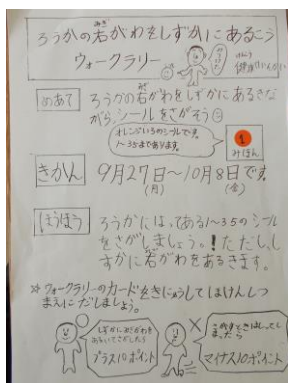 ろうかの右がわをしずかにあるこう
みぎ
ウォークラリー
めあて
ろうかの右がわをしずかにあるきな
がら、シールをさがそう
オレンジいろのシールです。
1~35まであります。
1
みほん
きかん
9月27日~10月8日です。
(月)
(金)
ほうほう
ろうかにはってある1~35のシール
をさがしましょう。!ただし、し
ずかに右がわをあるきます。
※ウォークラリーのカードをきにゅうしてほけんしつ
まえにだしましょう。
しずかに、右がわを
あるいてさがしたら
プラス10ポイント
マイナス10ポイント